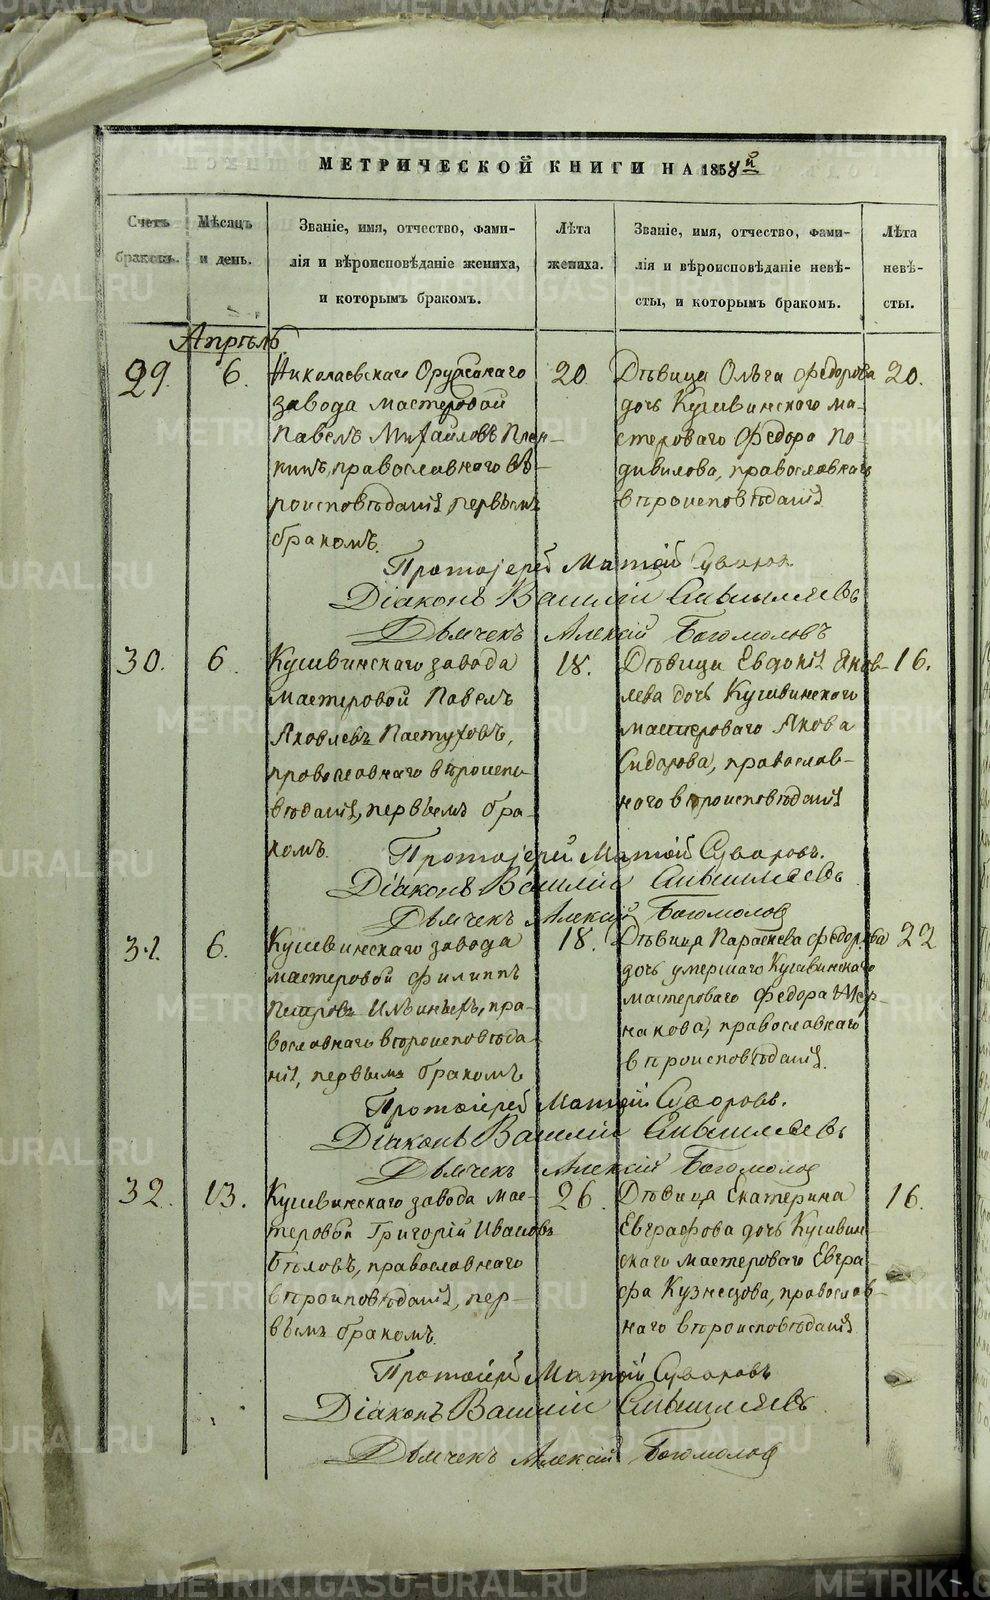 МЕТРИЧЕСКОЙ КНИГИ НА 1858й
Счетъ браковъ.
Мѣсяцъ и день.
Званіе, имя, отчество, фами-
лія и вѣроисповѣданіе жениха,
и которымъ бракомъ.
Лѣта
жениха.
Званіе, имя, отчество, фами-
лія и вѣроисповѣданіе невѣ-
сты, и которымъ бракомъ.
Лѣта
невѣ-
сты.
Апрѣль
29. 6.
Николаевскаго Оружейнаго
завода мастеровой
Павелъ Михайловъ
православнаго вѣ-
роисповѣданія, первымъ
бракомъ.
20.
Дѣвица Ольга Федорова
дочь Кушвинскаго ма-
стероваго Федора По-
дивилова, православнаго
вѣроисповѣданія
20.
Протоіерей Матѳій Суворовъ
Діаконъ Василій
Дьячекъ Алексій Богомоловъ
30. 6.
Кушвинскаго завода
мастеровой Павелъ
Яковлевъ Пастуховъ,
православнаго вѣроиспо-
вѣданія, первымъ бра-
комъ.
18.
Дѣвица Евдокія Яков-
лева дочь Кушвинскаго
мастероваго Якова
Сидорова, православ-
наго вѣроисповѣданія
16.
Протоіерей Матѳій Суворовъ.
Діаконъ Василій
Дьячекъ Алексій Богомолов
31. 6.
Кушвинскаго завода
мастеровой Филиппъ
Петровъ Ильиныхъ, пра-
вославнаго вѣроисповѣда-
нія, первымъ бракомъ
18.
Дѣвица Параскева Федорова
дочь умершаго Кушвинскаго
мастероваго Федора Жер-
накова, православнаго
вѣроисповѣданія.
22
Протоіерей Матѳій Суворовъ.
Діаконъ Василій
Дьячекъ Алексій Богомолов
32. 13.
Кушвинскаго завода мас-
теровой Григорій Ивановъ
Бѣловъ, православнаго
вѣроиповѣданія, пер-
вымъ бракомъ.
26.
Дѣвица Екатерина
Евграфова дочь Кушвин-
скаго мастероваго Евгра-
фа Кузнецова, православ-
наго вѣроисповѣданія
16.
Протоіерей Матѳій Суворовъ
Діаконъ Василій
Дьячекъ Алексій Богомолов
METRIKI.GASU-URAL.RU